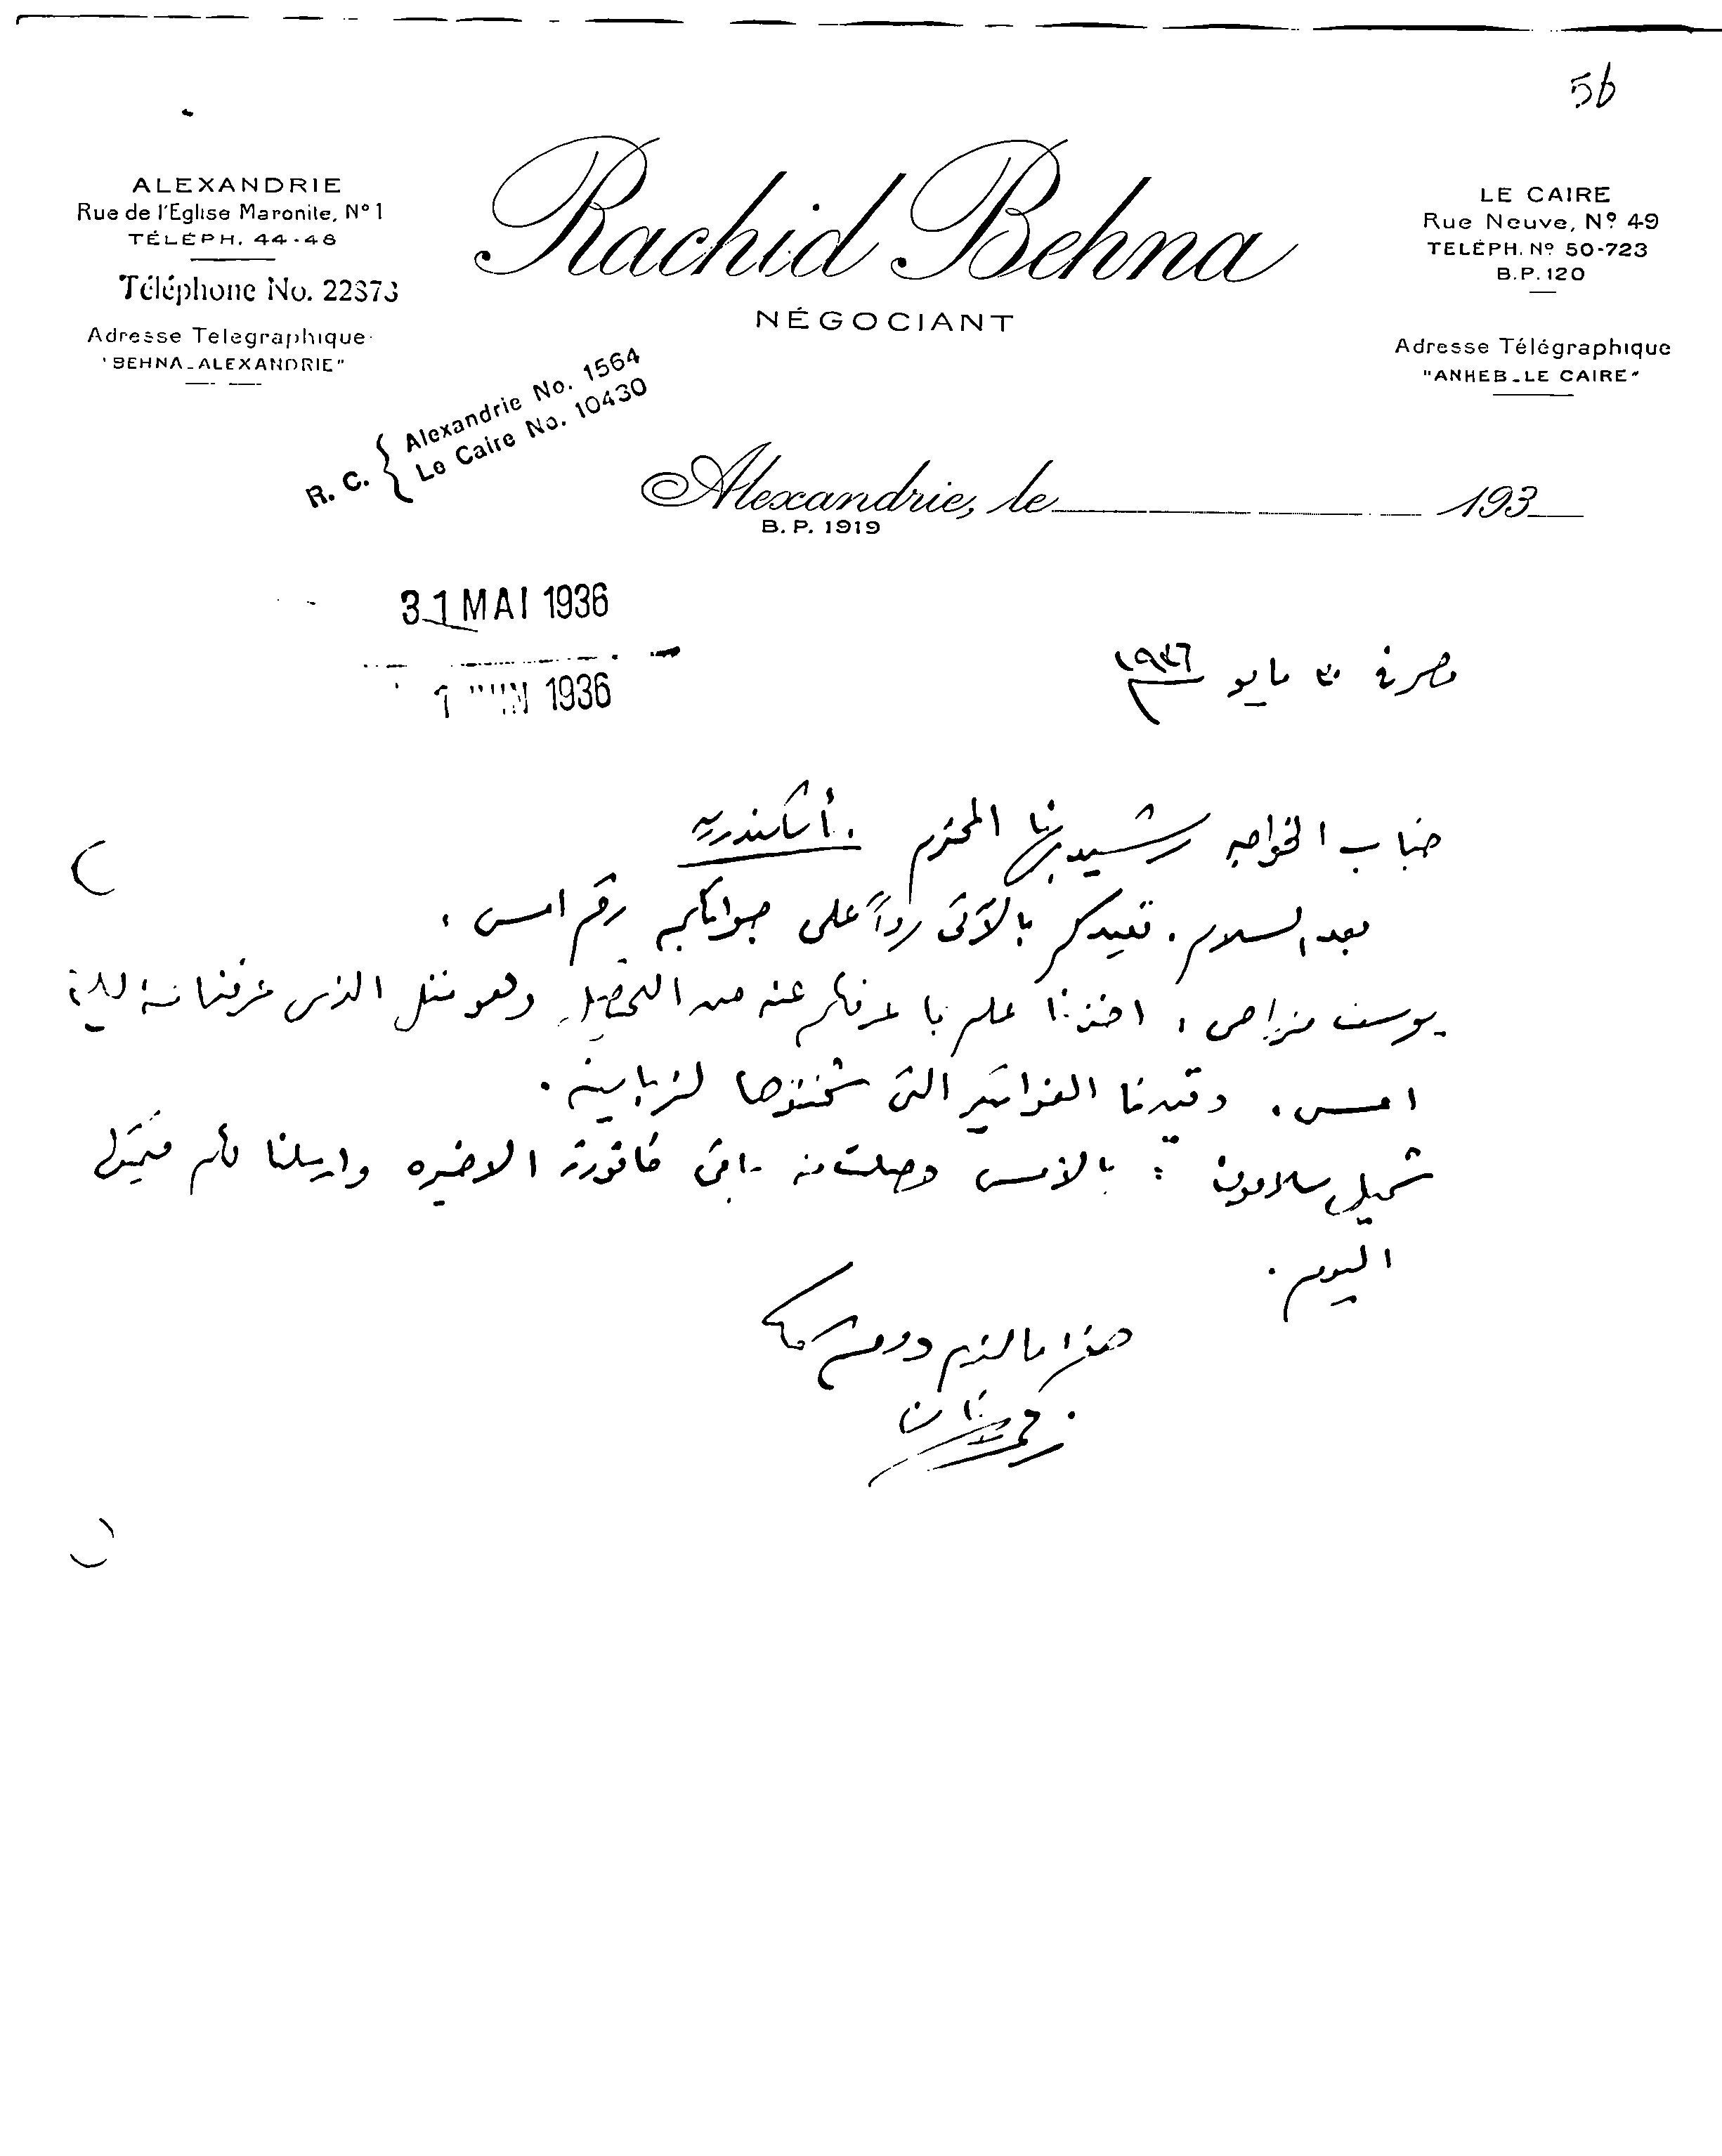 56
ALEXANDRIE
Rue de l'Eglise Maronite, N° 1
TÉLÉPH. 44-46
Téléphone No. 22373
Adresse Telegraphique
"BEHNA-ALEXANDRIE"
Rachid Behna
NÉGOCIANT
LE CAIRE
Rue Neuve, N° 49
TELÉPH. N° 50-723
B.P. 120
Adresse Télégraphique
"ANHEB-LE CAIRE"
R. C. { Alexandrie No. 1564
Le Caire No. 10430
Alexandrie, le 193
B. P. 1919
31 MAI 1936
1 JUIN 1936
مصر في ٣٠ مايو ١٩٣٦
جناب الخواجه رشيد بهنا المحترم . أسكندريه
بعد السلام . نفيدكم بالآتي رداً على جوابكم رقم امس .
يوسف ، اخذنا علم بما عرفتم عنه من التحصيل وهو مثل الذي عرفنا
امس . وقيدنا الفواتير التي شحنتوها لزباينه .
شميل سلامون : بالامس وصلت منه باقي فاتورة الاخيره وارسلنا لكم
اليوم .
هذا ما لزم ودمتم